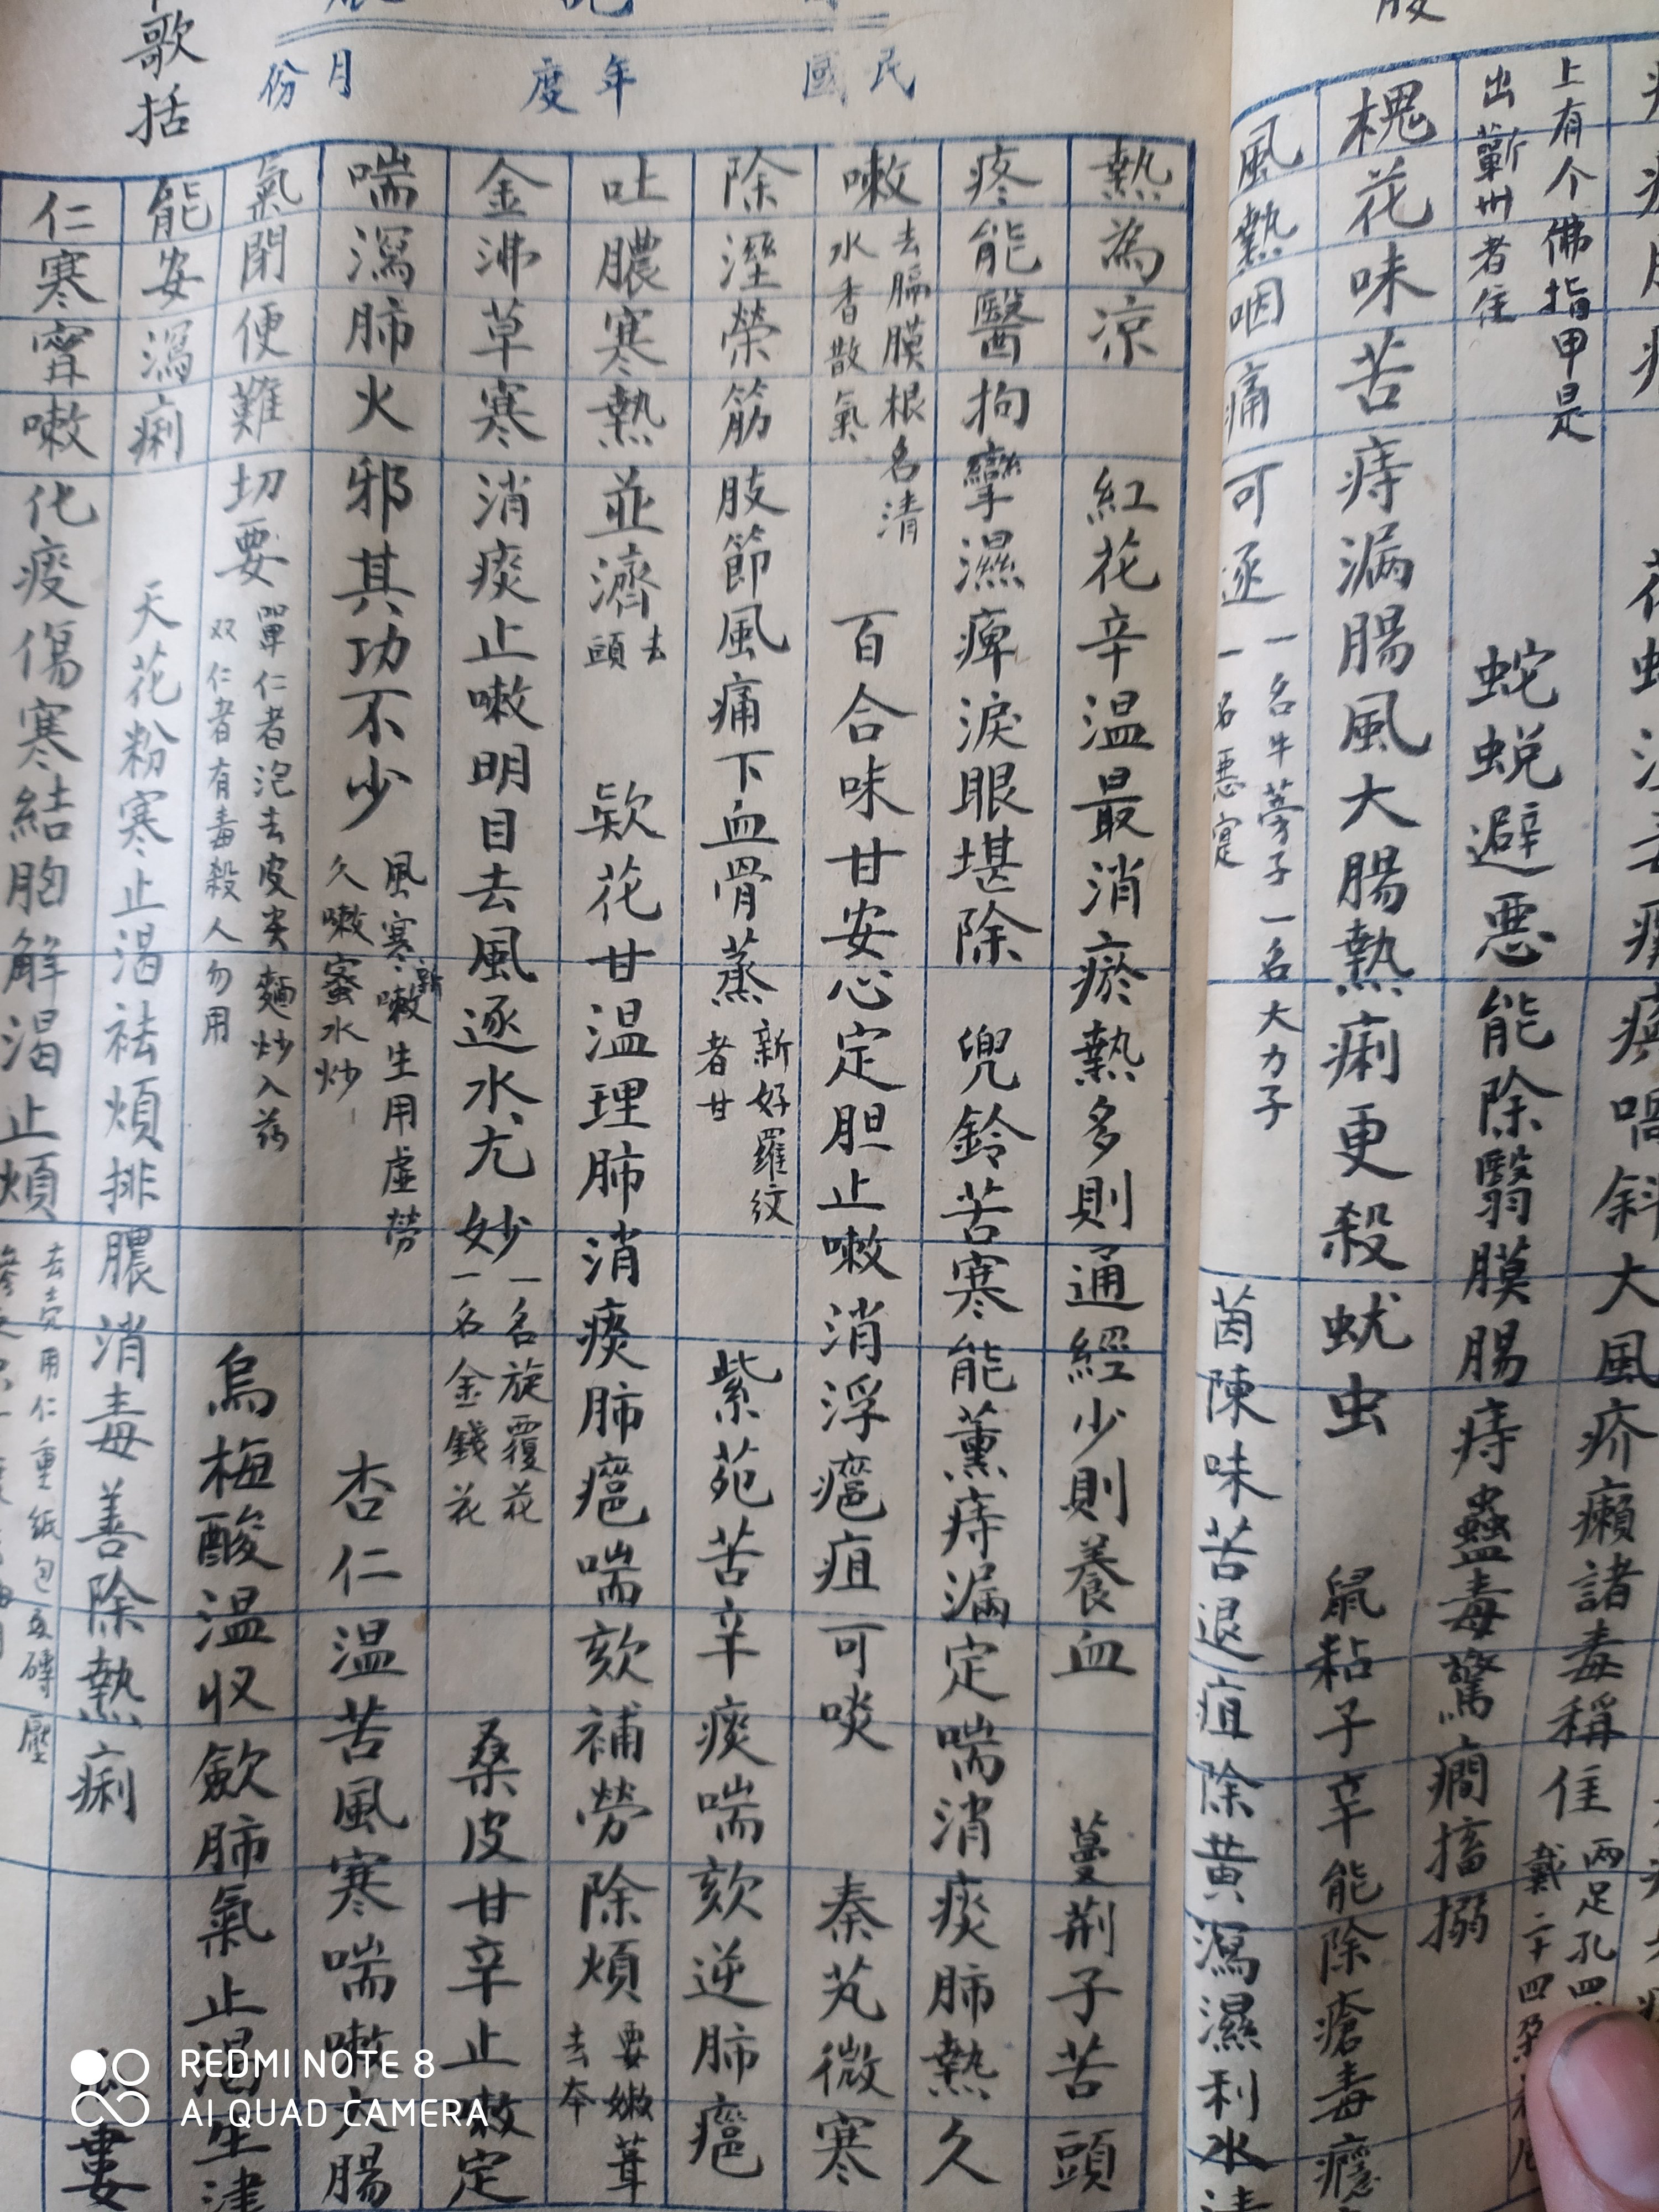 上有个佛指甲是
出蘄州者佳
蛇蜕避悪能除翳膜腸痔蠱毒驚癇搐搦
槐花味苦痔漏腸風大腸熱痢更殺蚘虫
鼠粘子辛能除瘡毒癮
風熱咽痛可逐
一名牛蒡子一名大力子
一名悪寔
茵陳味苦退疸除黄瀉濕利水清
民國
年度
月份
熱為凉
紅花辛温最消瘀熱多則通經少則養血
蔓荆子苦頭
疼能醫拘攣濕痺淚眼堪除
兜鈴苦寒能薰痔漏定喘消痰肺熱久
嗽
去膈膜根名清
水香散氣
百合味甘安心定胆止嗽消浮癰疽可啖
秦艽微寒
除溼榮筋肢節風痛下血骨蒸
新好羅紋
者甘
紫苑苦辛痰喘欬逆肺癰
吐膿寒熱並濟
去
頭
欵花甘温理肺消痰肺癰喘欬補勞除煩
要嫩茸
去夲
金沸草寒消痰止嗽明目去風逐水尤妙
一名旋覆花
一名金錢花
桑皮甘辛止嗽定
喘瀉肺火邪其功不少
風寒新嗽生用虛勞
久嗽蜜水炒
杏仁温苦風寒喘嗽大腸
氣閉便難切要
單仁者泡去皮尖麵炒入药
双仁者有毒殺人勿用
烏梅酸温収歛肺氣止渴生津
能安瀉痢
天花粉寒止渴袪煩排膿消毒善除熱痢
蔞
仁寒寗嗽化痰傷寒結胸解渴止煩
去壳用仁重紙包
磚壓
歌括
REDMI NOTE 8
AI QUAD CAMERA